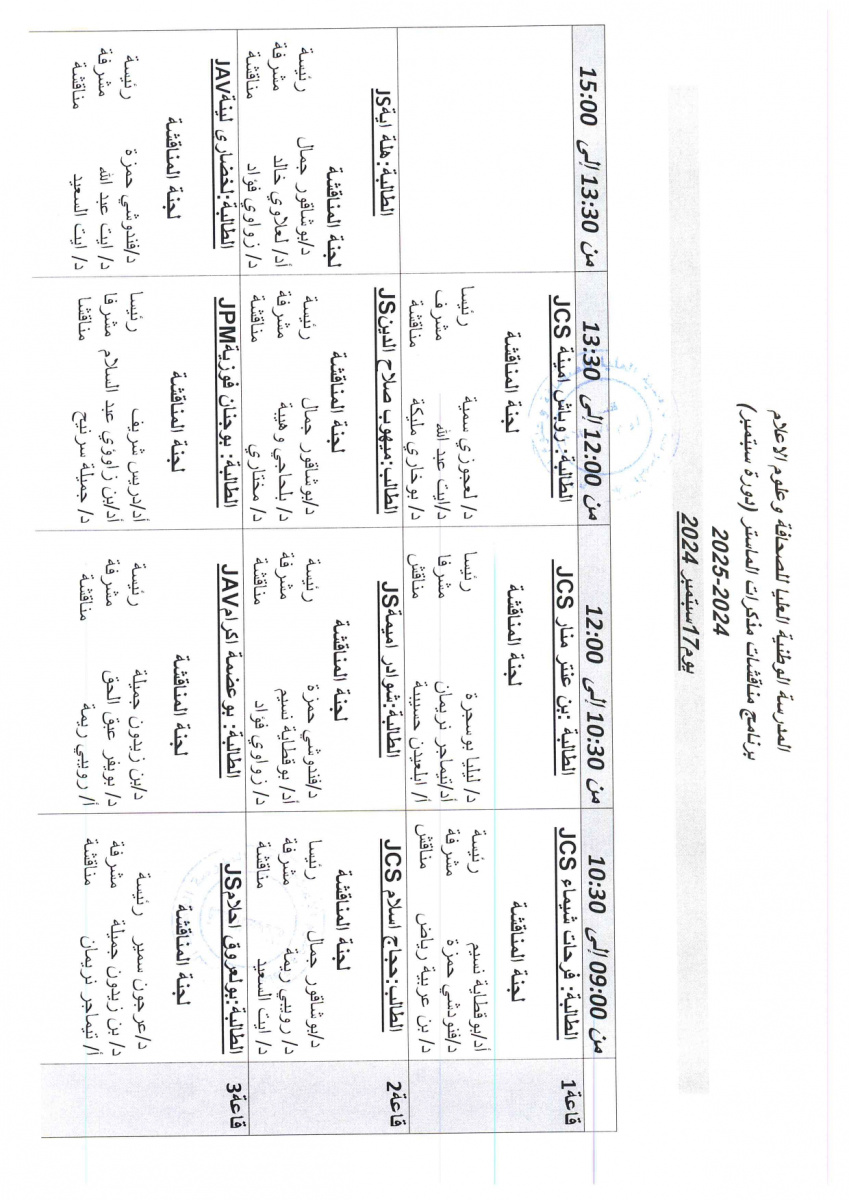 المدرسة الوطنية العليا للصحافة وعلوم الاعلام
برنامج مناقشات مذكرات الماستر (دورة سبتمبر)
2025-2024
يوم17سبتمبر 2024
من 09:00 إلى 10:30
من 10:30 إلى 12:00
من 12:00 إلى 13:30
من 13:30 إلى 15:00
قاعة1
الطالبة: فرحات شيماء JCS
لجنة المناقشة
أد/بوقطاية نسيم رئيسة
د/فندوشي حمزة مشرفة
د/ بن عربية رياض مناقش
الطالبة :بن عنتر منار JCS
لجنة المناقشة
د/ ليليا بوسجرة رئيسا
أد/تيماجر نريمان مشرفا
أ/ ابلعيدن حسيبة مناقش
الطالبة: روباش امينة JCS
لجنة المناقشة
د/ لعجوزي سمية رئيسا
د/ايت عبد الله مشرف
د/ بوخاري مليكة مناقشة
قاعة2
الطالب:حجاج اسلام JCS
لجنة المناقشة
د/بوشاقور جمال رئيسا
د/ رويبي ريمة مشرفة
د/ ايت السعيد مناقشة
الطالبة:شوادر اميمةJS
لجنة المناقشة
د/فندوشي حمزة رئيسة
أد/ بوقطاية نسيم مشرفة
د/ زواوي فؤاد مناقشة
الطالب:ميهوب صلاح الدينJS
لجنة المناقشة
د/بوشاقور جمال رئيسة
د/ بلحاجي وهيبة مشرفة
د/ مختاري مناقشة
الطالبة:هلة ايةJS
لجنة المناقشة
د/بوشاقور جمال رئيسة
أد/ لعلاوي خالد مشرفة
د/ زواوي فؤاد مناقشة
قاعة3
الطالبة:بولعروق احلامJS
لجنة المناقشة
د/عرجون سمير رئيسة
د/ بن زيدون جميلة مشرفة
أ/ تيماجر نريمان مناقشة
الطالبة: بوعضمة اكرامJAV
لجنة المناقشة
د/بن زيدون جميلة رئيسة
د/ بويفر عبق الحق مشرفة
أ/ رويبي ريمة مناقشة
الطالبة: بوجنان فوزيةJPM
لجنة المناقشة
أد/دريس شريف رئيسا
أد/بن زاووي عبد السلام مشرفا
د/ جميلة سرنيح مناقشا
الطالبة:لخضاري لينةJAV
لجنة المناقشة
د/فندوشي حمزة رئيسة
د/ ايت عبد الله مشرفة
د/ ايت السعيد مناقشة